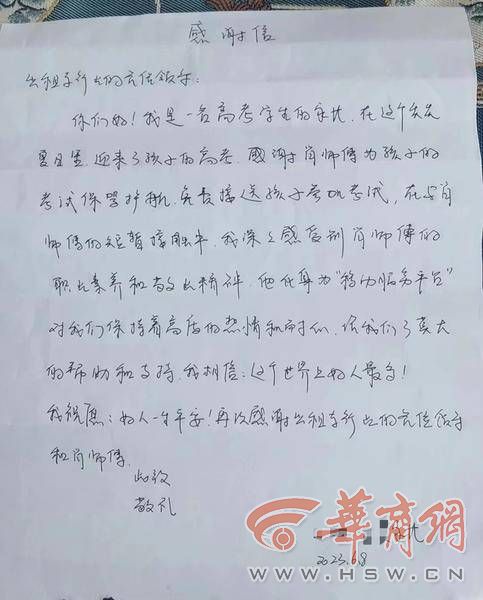 感谢信
出租车行业的竞位领导:
你们好!我是一名高考学生的家长,在这个炎炎
夏日里,迎来了孩子的高考.感谢肖师傅为孩子的
考试保驾护航,免费接送孩子参加考试,在与肖
师傅的短暂接触中,我深深感受到肖师傅的
职业素养和敬业精神.他化身为“移动服务平台”
对我们保持着高度的热情和耐心,给我们了莫大
的帮助和支持.我相信:这个世界上好人最多!
我祝愿:好人一生平安!再次感谢出租车行业的领导
和肖师傅.
此致
敬礼
家长
2023.6.8
華商網
WWW.HSW.CN